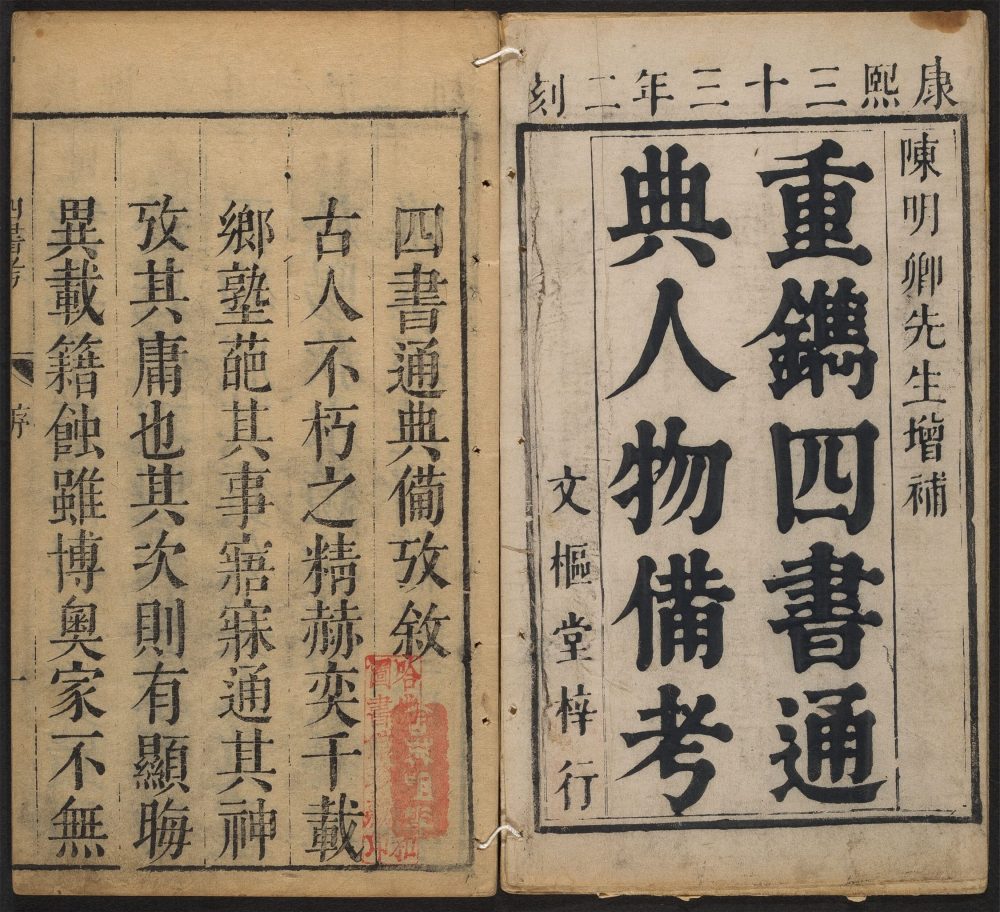 康熙三十三年二刻
陳明卿先生增補
重鐫四書通
典人物備考
文樞堂梓行
四書通典備攷敘
古人不朽之精赫奕千載
鄉塾葩其事寤寐通其神
攷其庸也其次則有顯晦
異載籍蝕雖博奧家不無
序
一